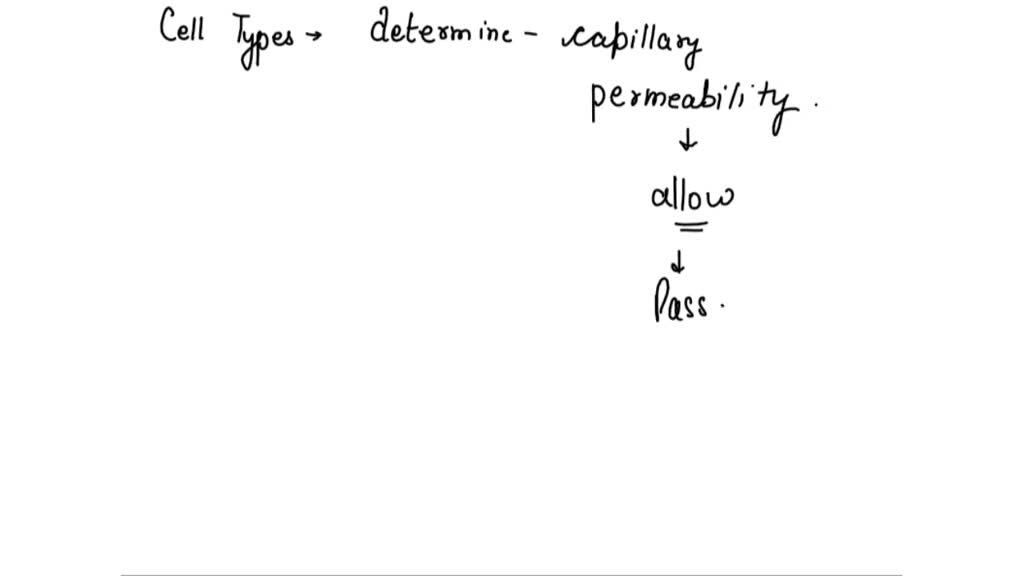 Cell Types → determine - capillary
permeability.
↓
allow
↓
Pass.